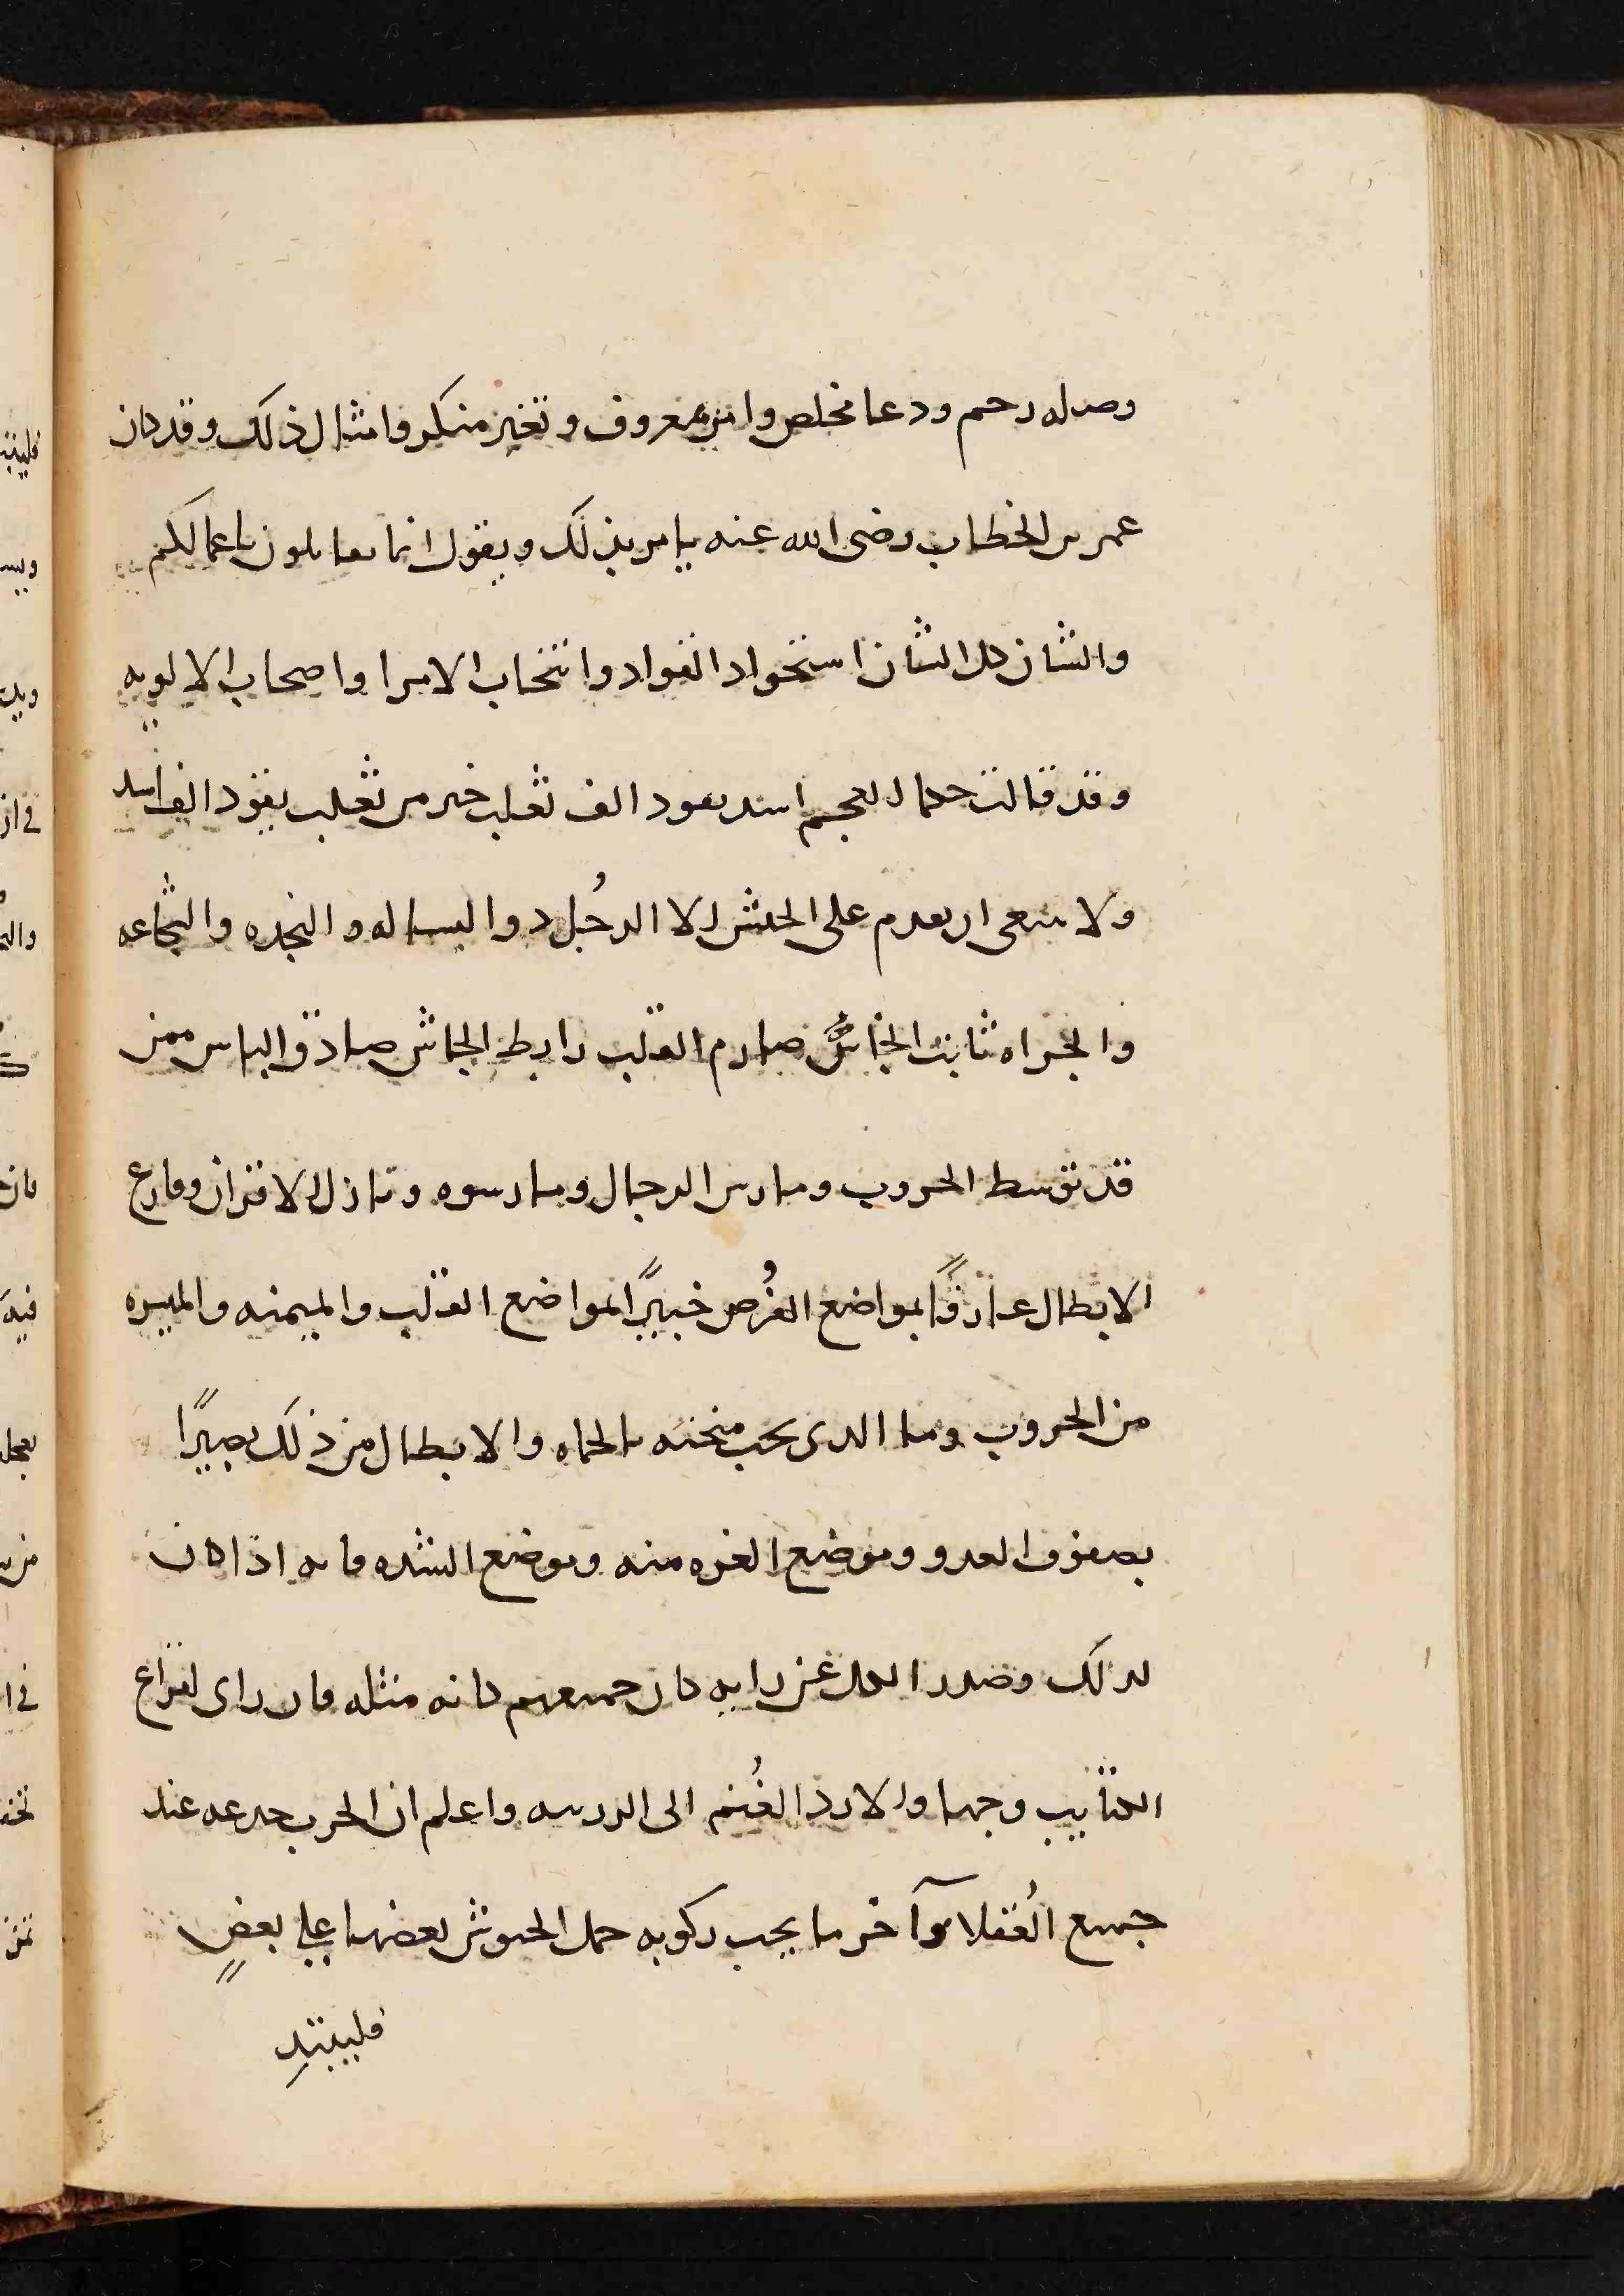 وصله رحم ودعا مخلص وامر بمعروف وتغير منكر وامثال ذلك وقد كان
عمر بن الخطاب رضى الله عنه يامر بذلك ويقول انما تقاتلون باعمالكم
والشان كل الشان استجواد القواد وانتخاب الامرا واصحاب الالويه
وقد قالت حكما العجم اسد يقود الف ثعلب خير من ثعلب يقود الف اسد
ولا ينبغى ان يقدم على الجيش الا الرجُل ذوا البساله والنجده والشجاعه
والجراه ثابت الجاش صارم القلب رابط الجاش صادق الباس ممن
قد توسط الحروب ومارس الرجال ومارسوه ونازل الاقران وقارع
الابطال عارفًا بمواضع الفُرص خبيرًا بمواضع القلب والميمنه والميسره
من الحروب وما الذى يجب شحنه بالحماه والابطال من ذلك بصيرًا
بصفوف العدو وموضع الغره منه وموضع الشده فانه اذا كان
كذلك وصدر الكل عن رايه كان جميعهم كانه مثله فان راى لقراع
الكتايب وجها والا رد الغُنم الى الزريبه واعلم ان الحرب خدعه عند
جميع العُقلا وآخر ما يجب ركوبه حمل الجيوش بعضها على بعضٍ